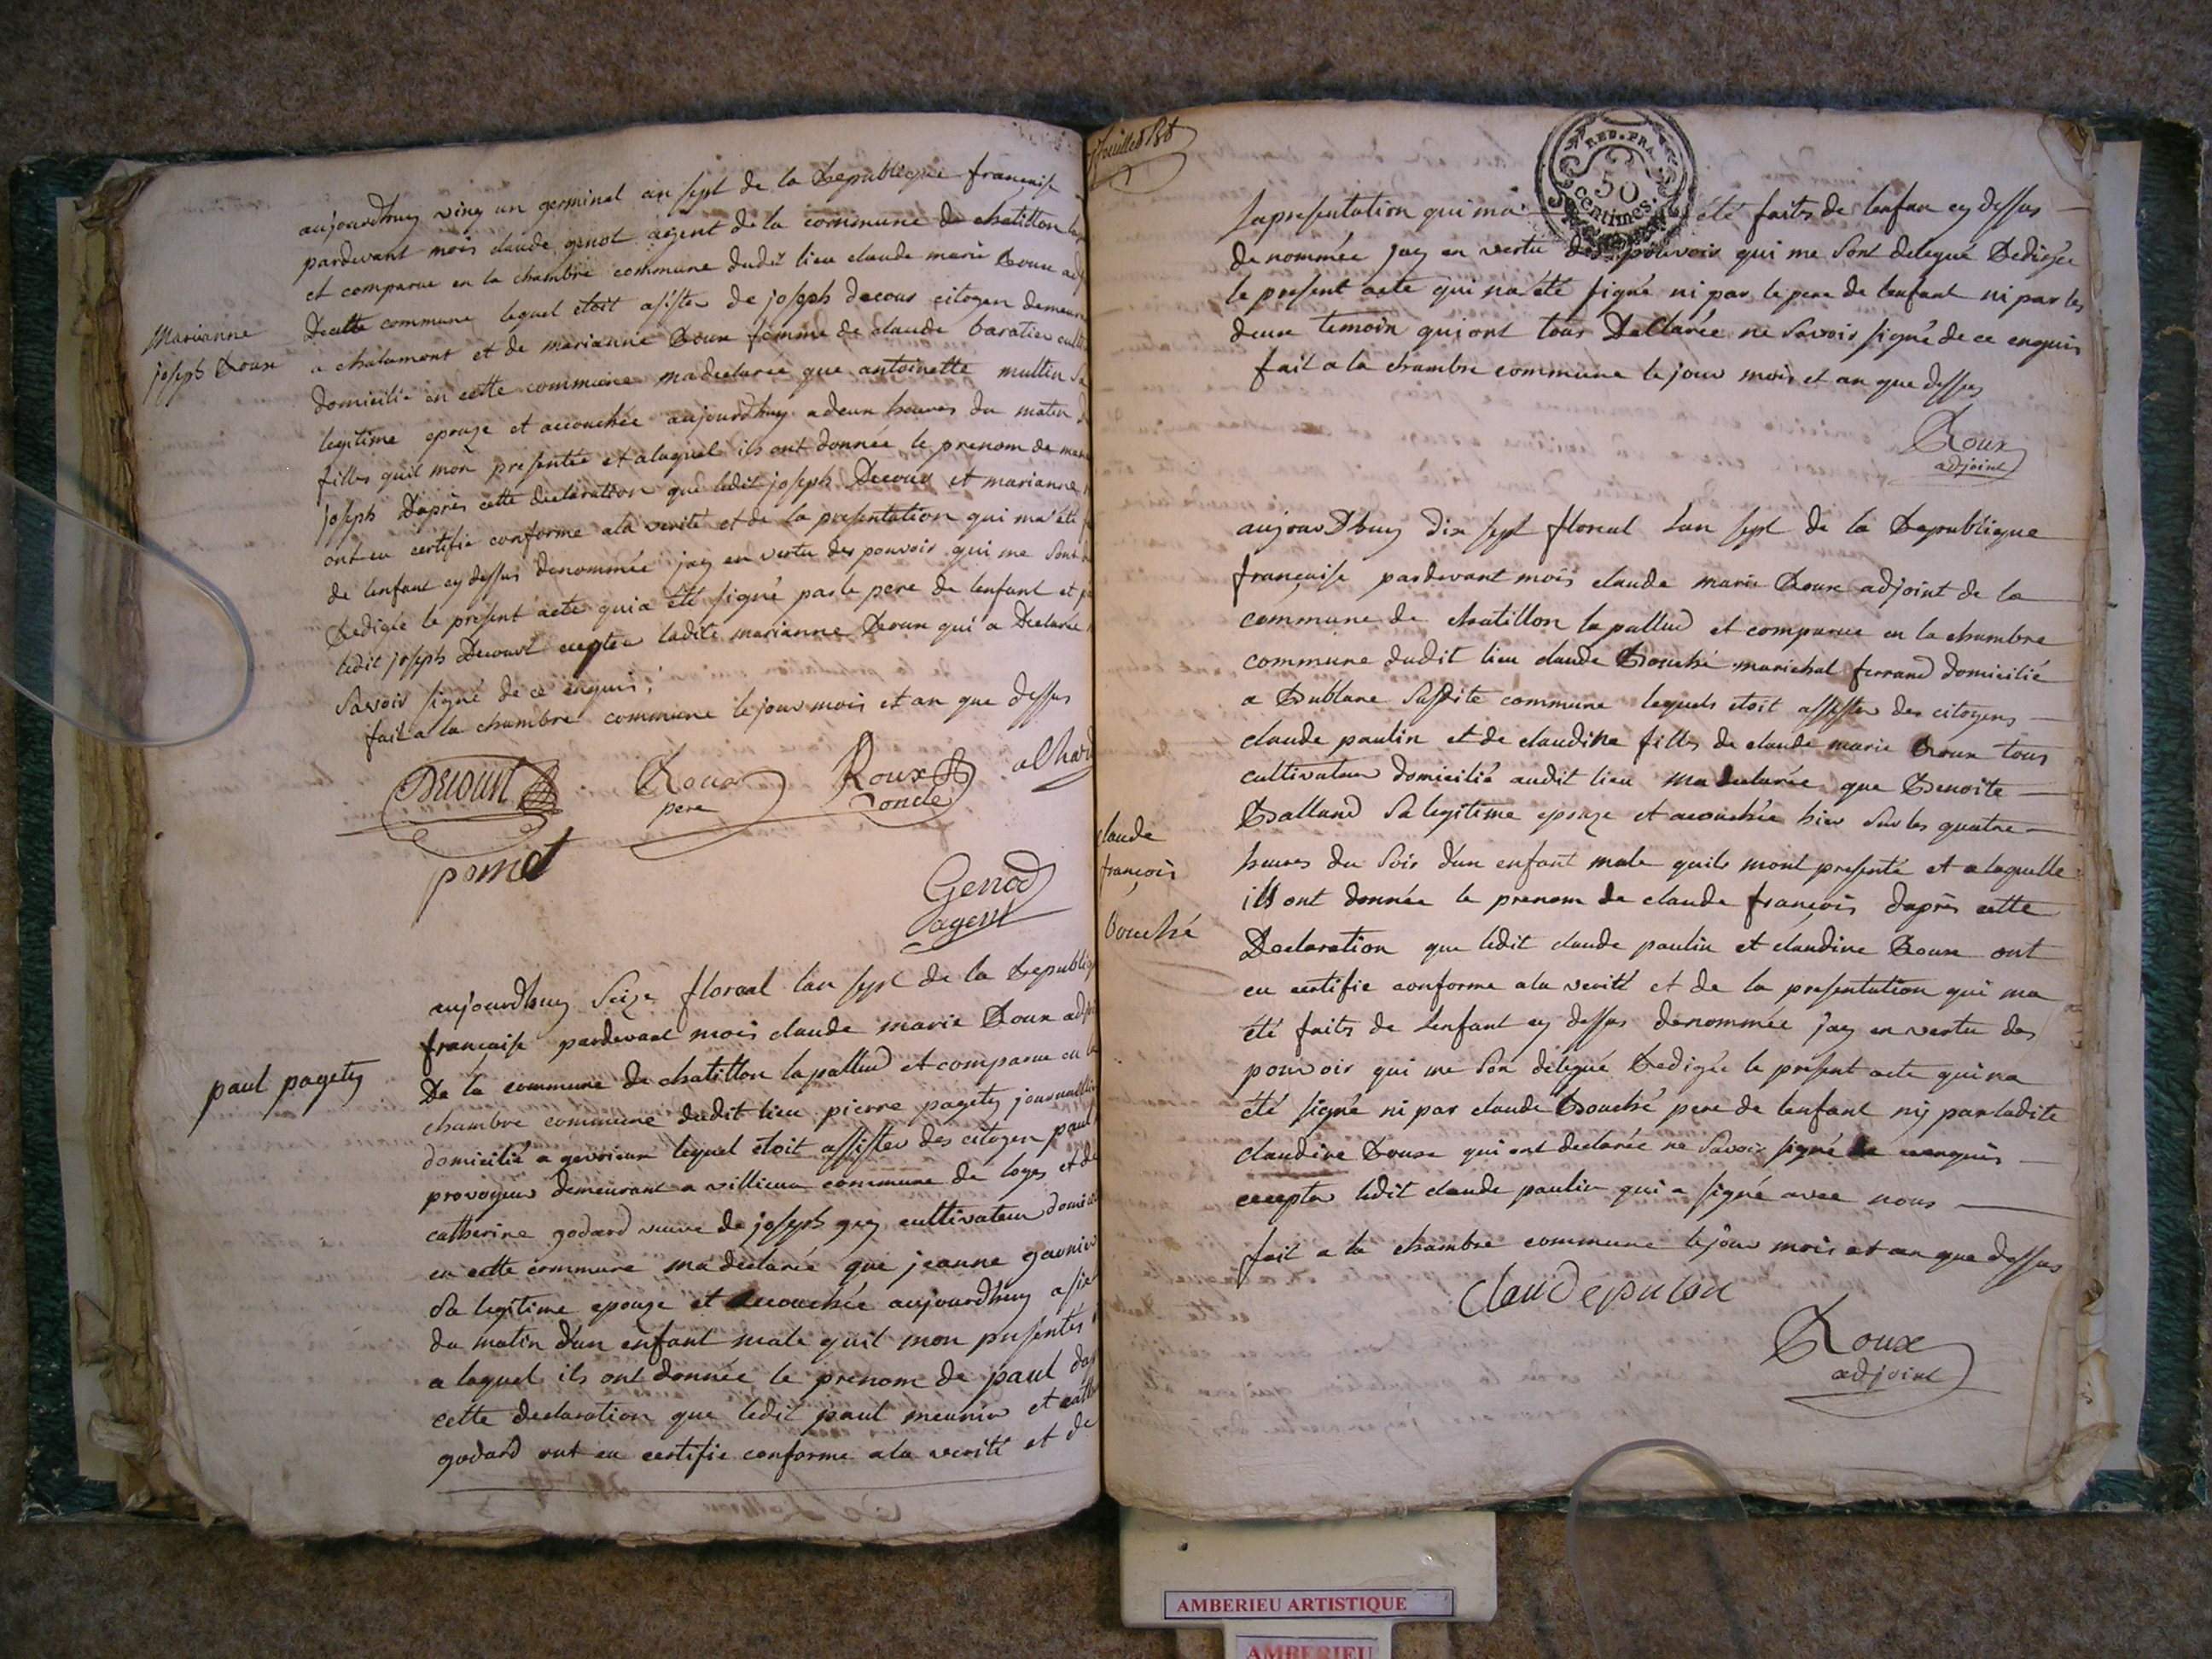 aujourdhuy ving un germinal an sept de la Republique française
pardevant mois claude genot agent de la commune de chatillon la
et comparue en la chambre commune dudit lieu claude marie Roux adj
Marianne
joseph Roux
Decette commune lequel etoit asister de joseph decour citoyen demeur
a chalamont et de marianne Roux femme de claude baratier cult
domicilié en cette commune ma declaree que antoinette multin Sa
legitime epouze et accouchée aujourdhuy a deux heures du matin d
filles quil mon presentée et alaquel ils ont donnée le prenom de mar
joseph Daprès cette declaration que ledit joseph Decour et marianne
ont eu certifie conforme ala verité et de la presentation qui ma été
de lenfant cy dessus denommée jay en vertu des pouvoir qui me sont
Redigée le present acte qui a été signé par le pere de lenfant et p
ledit joseph Decourt excepter ladite marianne Roux qui a Declarée
Savoir signé de ce enquis
fait a la chambre commune le jour mois et an que dessus
Decourt
Roux
pere
Roux
oncle
ponet
Genod
agent
aujourdhuy Seize floreal lan sept de la Republiq
française pardevant mois claude marie Roux adjoi
De la commune de chatillon lapallud et comparue en la
paul pagety
chambre commune dudit lieu pierre pagety journallier
domicilié a gevrieux lequel etoit assister des citoyen paul
provoyeur demeurant a villieux commune de loyes et de
catherine godard veuve de joseph gey cultivateur domici
en cette commune ma declarée que jeanne garnier
Sa legitime epouze et accouchée aujourdhuy a six
du matin d'un enfant male quil mon presentés
a laquel ils ont donnée le prenom de paul dap
cette declaration que ledit paul meunier et cath
godard ont eu certifie conforme ala verité et de
feuillet
REP. FRA.
50
Centimes.
la presentation qui ma été faits de lenfan cy dessus
denommée jay en vertu des pouvoir qui me sont delegué Redigée
le present acte qui na été signé ni par le pere de lenfant ni par les
deux temoin qui ont tous Declarée ne Savoir signé de ce enquis
fait a la chambre commune le jour mois et an que dessus
Roux
adjoint
aujourDhuy Dix sept floreal Lan sept de la Republique
française pardevant mois claude marie Roux adjoint de la
commune de chatillon la pallud et comparue en la chambre
commune dudit lieu claude Bouché marichal ferrand domicilié
a Bublane Susdite commune lequels etoit assister des citoyens
claude paulin et de claudine filles de claude marie Roux tous
cultivateur domicilié audit lieu ma declarée que Benoite
Balland Sa legitime epouze et acouchée hier Sur les quatre
claude
françois
Bouché
heures du Soir d'un enfant male quils mont presenté et alaquelle
ils ont donnée le prenom de claude françois daprès cette
Declaration que ledit claude paulin et claudine Roux ont
eu certifie conforme ala verité et de la presentation qui ma
été faits de Lenfant cy dessus denommée jay en vertu des
pouvoir qui me Son delegué Redigée le present acte qui na
été signé ni par claude Bouché pere de lenfant nij par ladite
claudine Roux qui ont declarée ne Savoir signé de ce enquis
excepter ledit claude paulin qui a signé avec nous
fait a la chambre commune le jour mois et an que dessus
Roux
adjoint
AMBERIEU ARTISTIQUE
AMBERIEU